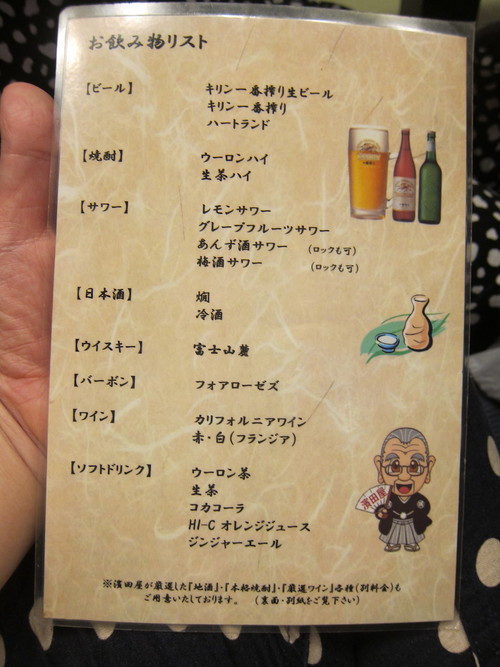 お飲み物リスト
【ビール】 キリン一番搾り生ビール
キリン一番搾り
ハートランド
【焼酎】 ウーロンハイ
生茶ハイ
【サワー】 レモンサワー
グレープフルーツサワー
あんず酒サワー (ロックも可)
梅酒サワー (ロックも可)
【日本酒】 燗
冷酒
【ウイスキー】 富士山麓
【バーボン】 フォアローゼズ
【ワイン】 カリフォルニアワイン
赤・白(フランジア)
【ソフトドリンク】 ウーロン茶
生茶
コカコーラ
HI-C オレンジジュース
ジンジャーエール
濱田屋
※濱田屋が厳選した『地酒』・『本格焼酎』・『厳選ワイン』各種(別料金)も
ご用意いたしております。 (裏面・別紙をご覧下さい)